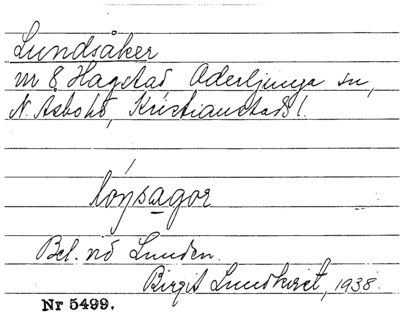 Lundsåker
nr 8 Hagstad Oderljunga sn,
N. Åsbo hd, Kristianstads l.
lóŋsagor
Bel. vid Lunden.
Birgit Lundkvist, 1938.
Nr 5499.